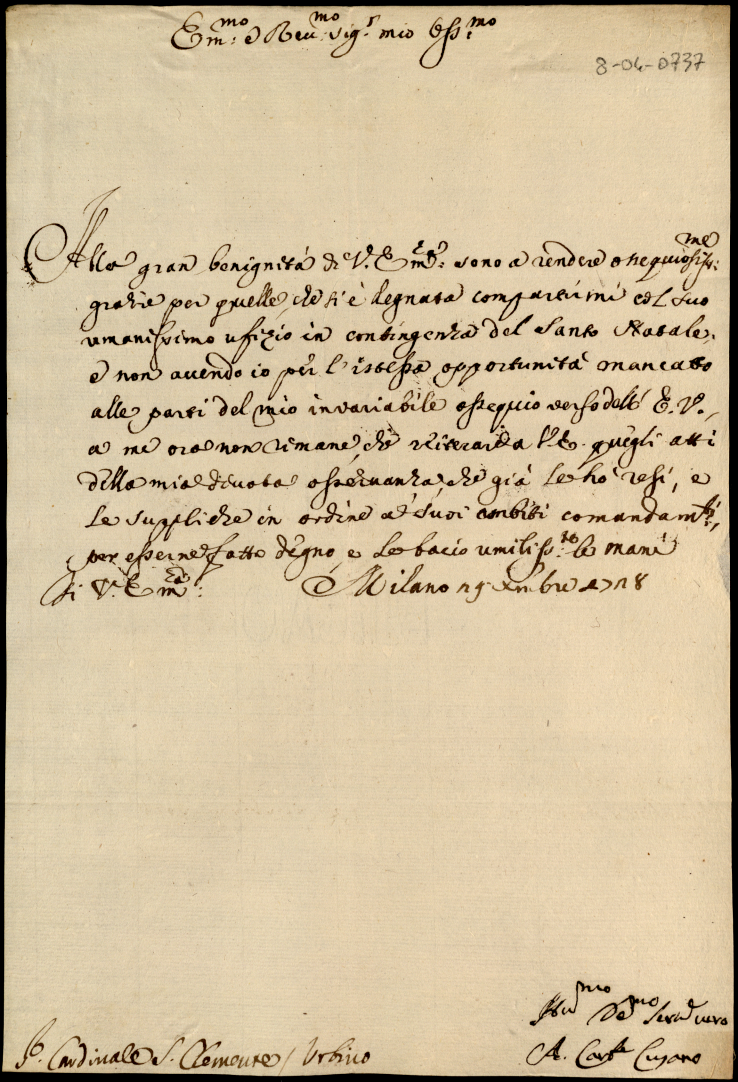 Em.mo e Reu.mo sig.r mio oss.mo
8-04-0737
Alla gran benignità di V. Em.za: sono a rendere ossequiosiss:me
grazie per quelle, che si è degnata compartirmi col suo
umanissimo ufizio in contingenza del Santo Natale,
e non auendo io per l'istessa opportunità mancato
alle parti del mio inuariabile ossequio uerso dell' E. V.,
a me ora non rimane, che reiterar quegli atti
della mia diuota osseruanza, che già le hò resi, e
le suppliche in ordine a' suoi ambiti comandam.ti,
per esserne fatto degno, e le bacio umiliss.te le mani
di V. Em.za: Milano
Hu.mo De.mo Ser.e uero
A. Card.le Cusano
S.r Cardinale S. Clemente / Urbino